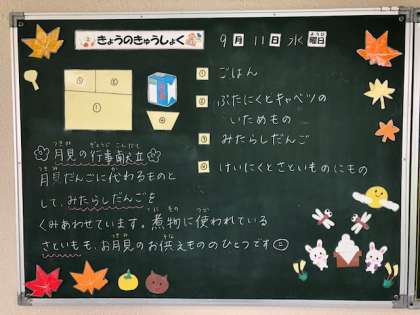 きょうのきゅうしょく
9月11日 水曜日
① ごはん
② ぶたにくとキャベツの
いためもの
③ みたらしだんご
④ けいにくとさといものにもの
月見の行事献立
月見だんごに代わるものと
して、みたらしだんごを
くみあわせています。煮物に使われている
さといもも、お月見のお供えもののひとつです